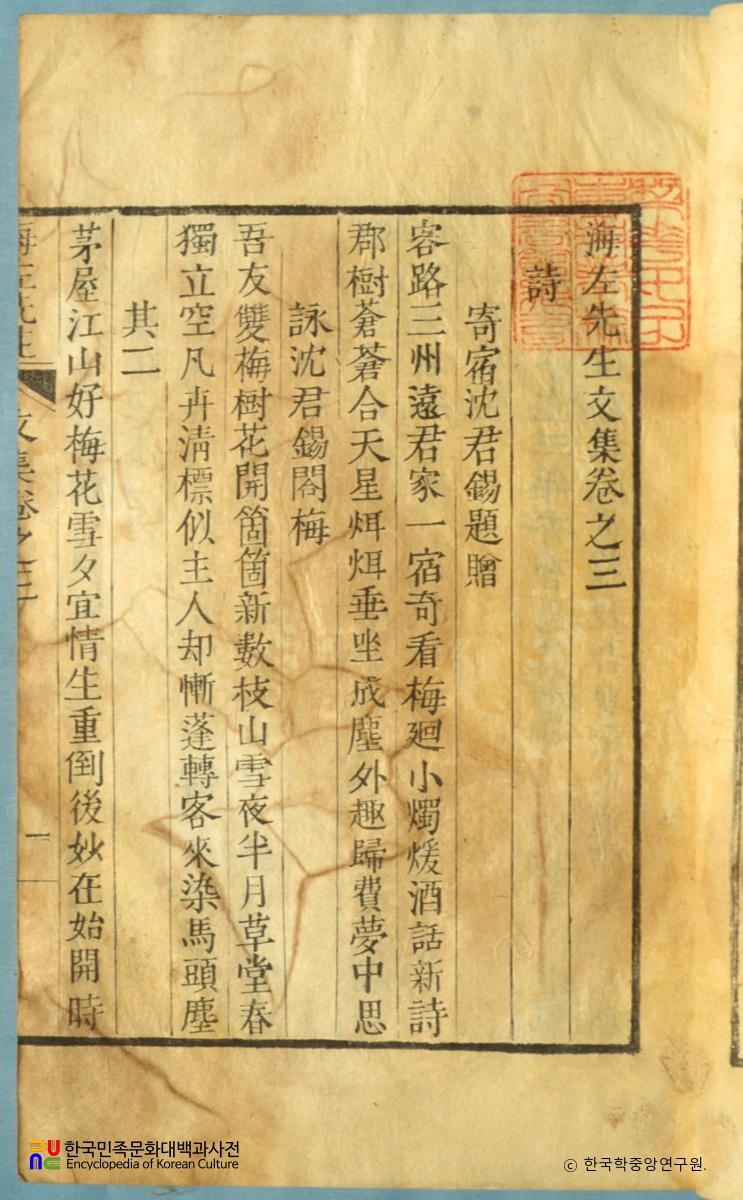 海左先生文集卷之三
詩
寄宿沈君錫題贈
客路三州遠君家一宿奇看梅廻小燭煖酒話新詩
郡樹蒼蒼合天星炯炯垂坐成塵外趣歸費夢中思
詠沈君錫閤梅
吾友雙梅樹花開箇箇新數枝山雪夜半月草堂春
獨立空凡卉淸標似主人却慚蓬轉客來染馬頭塵
其二
茅屋江山好梅花雪夕宜情生重倒後妙在始開時
海左先生文集卷之三
一
한국민족문화대백과사전
Encyclopedia of Korean Culture
ⓒ 한국학중앙연구원.